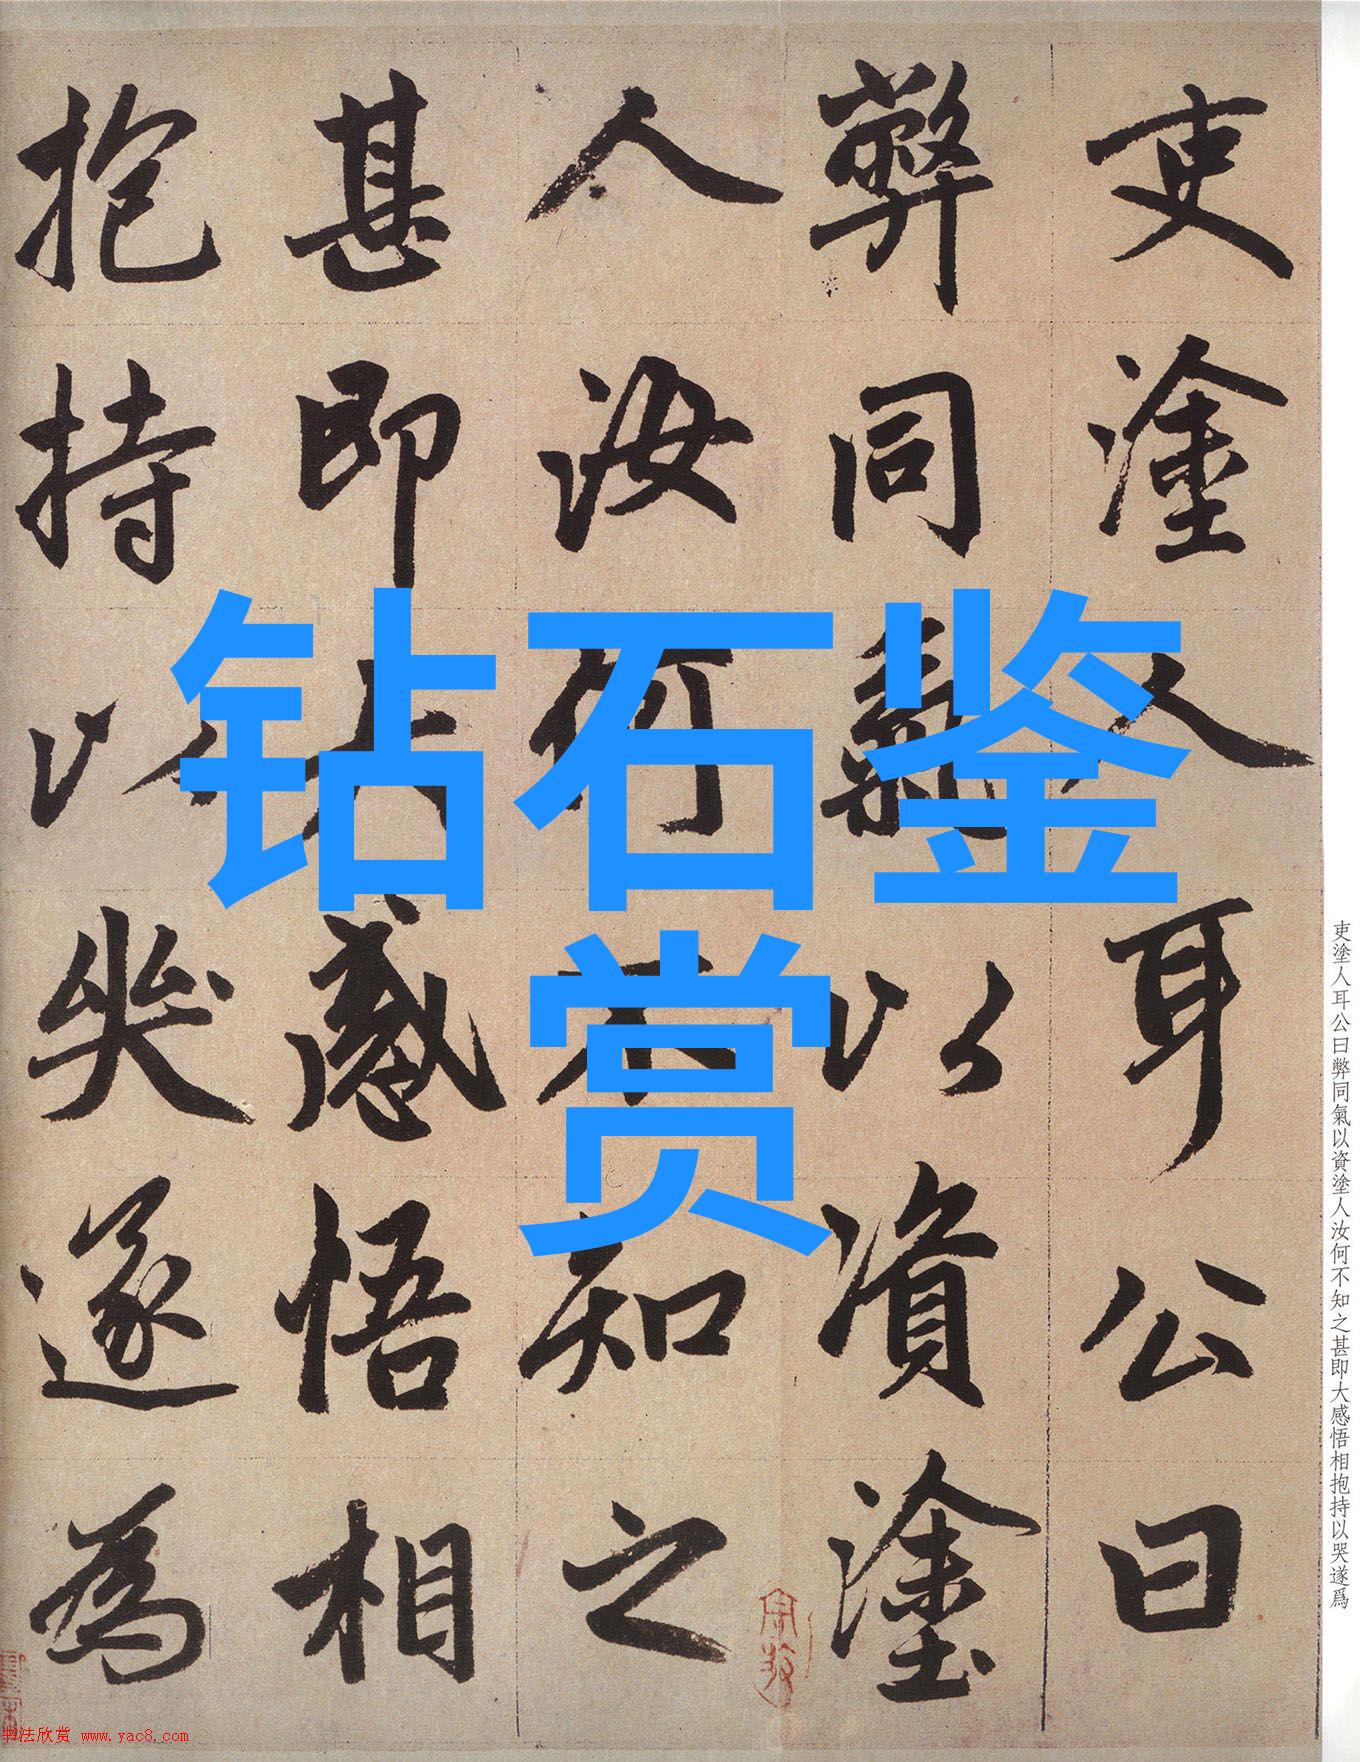 吏塗人耳公曰
弊同氣以資塗
人汝何不知之
甚即大感悟相
抱持以哭遂為
钻石鉴
赏
吏塗人耳公曰弊同氣以資塗人汝何不知之甚即大感悟相抱持以哭遂爲
书法欣赏 www.yac8.com